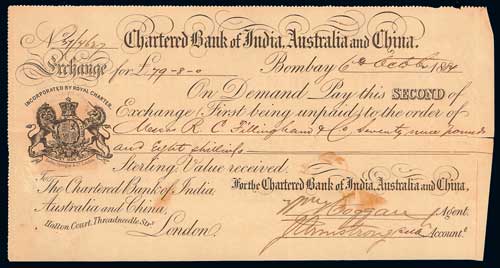 Chartered Bank of India, Australia and China.
Exchange for £79-8-0 Bombay 6th Octbr 1884
On Demand Pay this SECOND of
INCORPORATED BY ROYAL CHARTER.
Exchange (First being unpaid) to the order of
Messrs R. C. Fillingham & Co. seventy nine pounds
and eight shillings
Sterling. Value received.
To The Chartered Bank of India, Australia and China,
Hatton Court, Threadneedle Str. London.
For the Chartered Bank of India, Australia and China,
Agent.
Armstrong Account.t